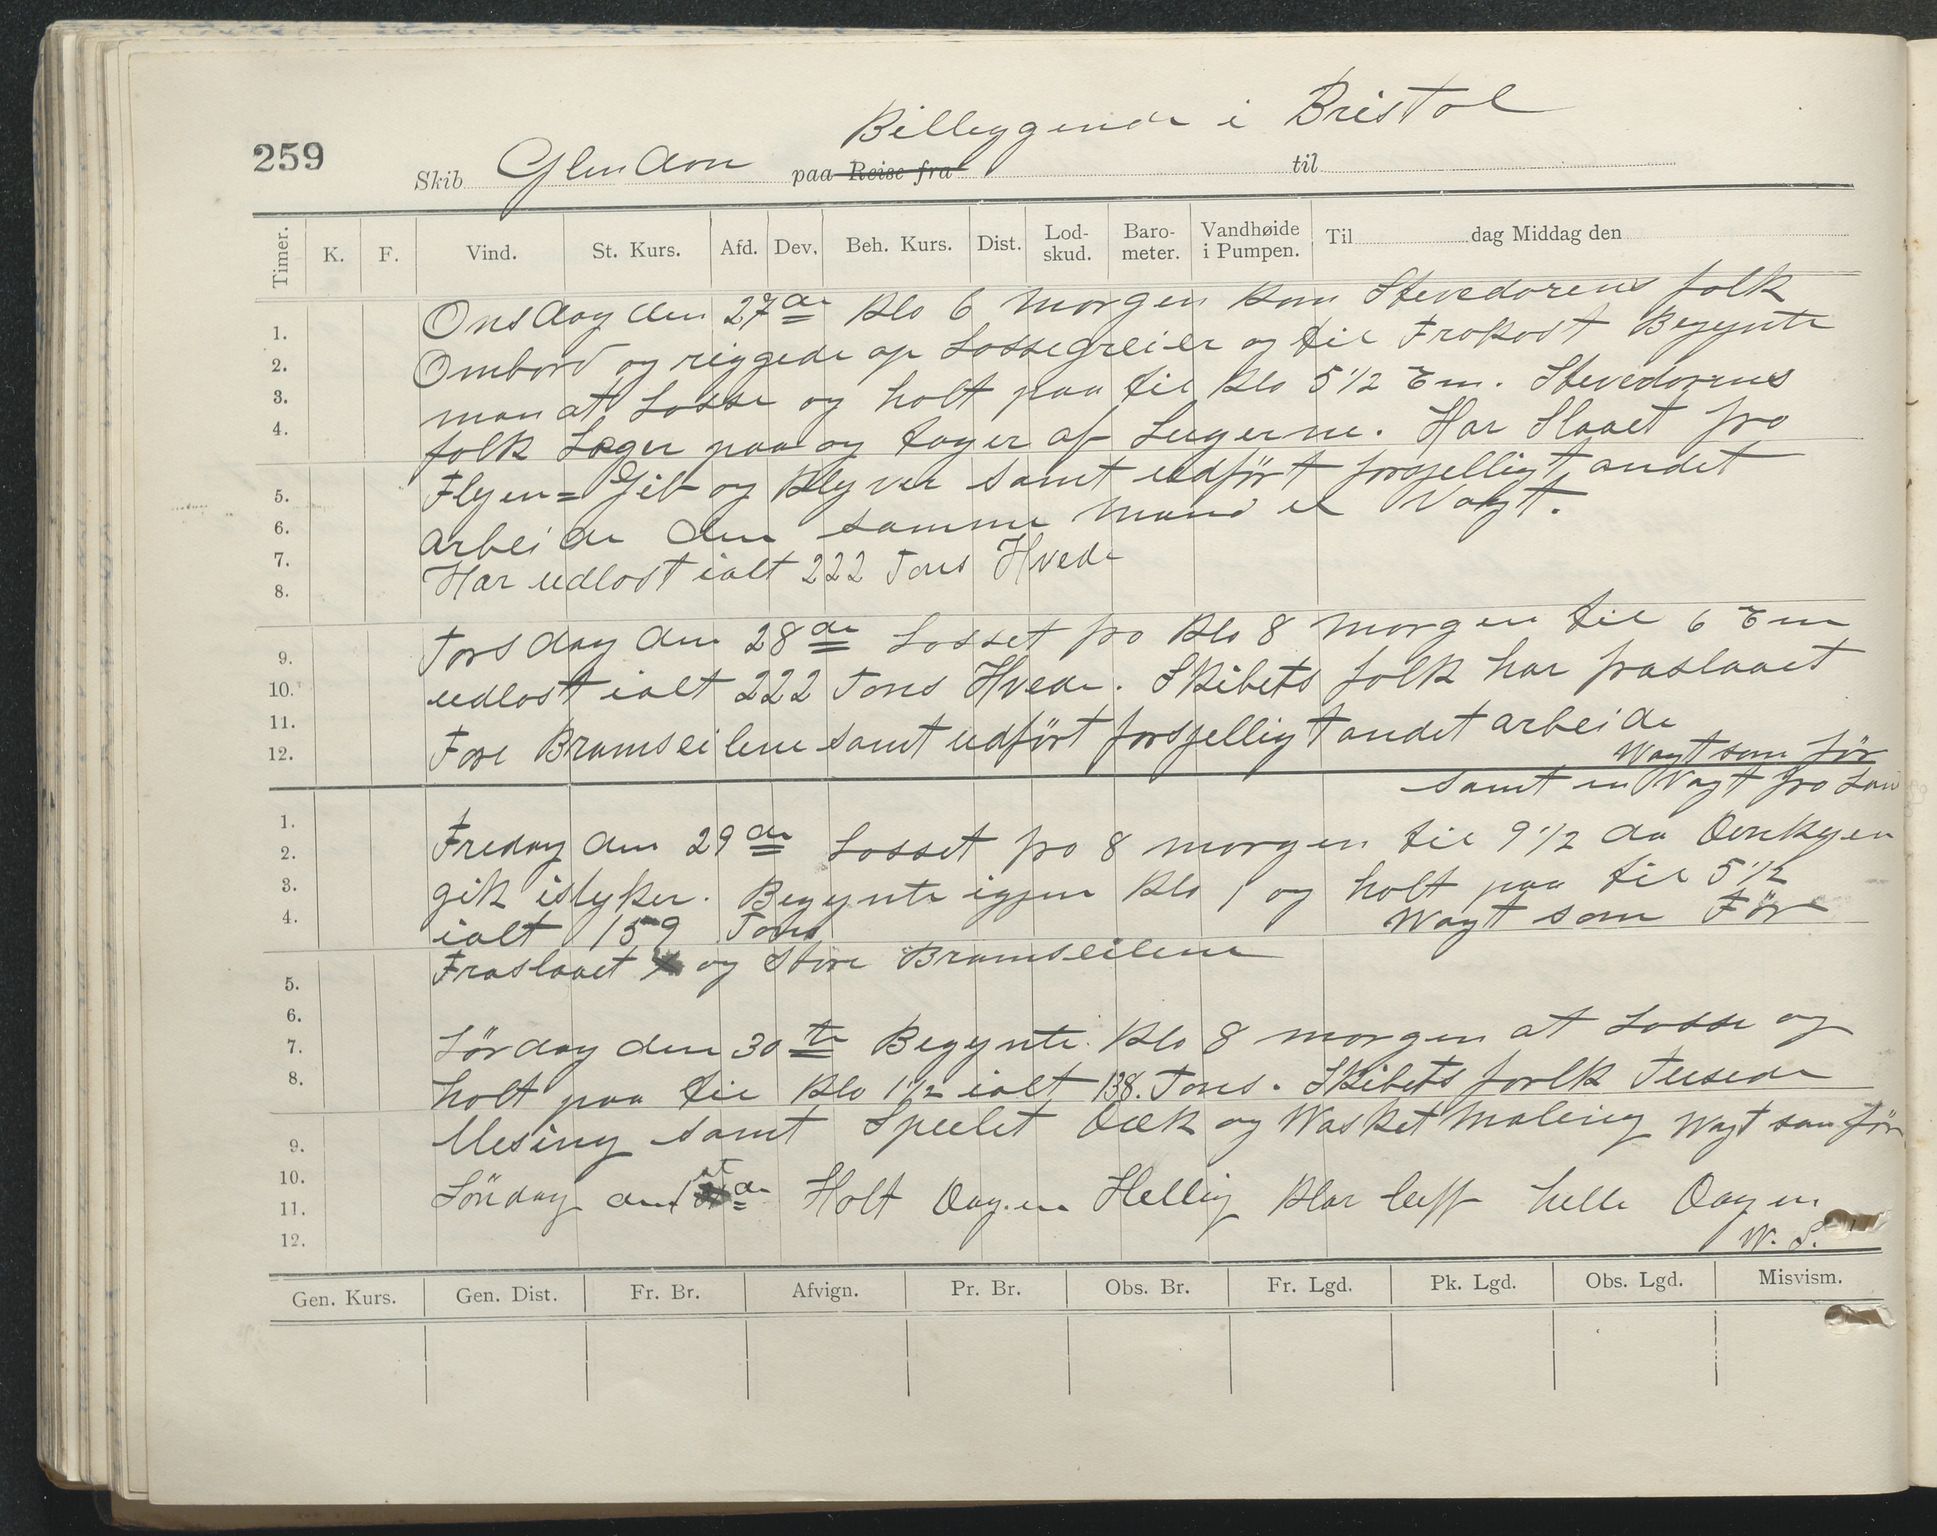 259
Skib Glendoon paa Reise fra Billiggende i Bristol til
Timer. K. F. Vind. St. Kurs. Afd. Dev. Beh. Kurs. Dist. Lod-skud. Baro-meter. Vandhøide i Pumpen. Til dag Middag den
Onsdag den 27de Klo 6 Morgen kom Stevedorens folk
1.
Ombord og riggede op Lossegreier og til Frokost Begynte
2.
man at Losse og holt paa til Klo 5 1/2 Em. Stevedorens
3.
folk Leger paa og tager af Lugerne. Har Slaaet fra
4.
Flyen=Jib og Klyver samt udført forsjelligt andet
5.
arbeide den samme Mand er Vagt.
6.
Har udlost ialt 222 Tons Hvede
7.
8.
Torsdag den 28de Losset fra Klo 8 Morgen til 6 Em
9.
udlost ialt 222 Tons Hvede. Skibets folk har fraslaaet
10.
Fore Bramseilene samt udført forsjelligt andet arbeide
11.
12.
Wagt som før
samt en Vagt fra Lan
1.
Fredag den 29de Losset fra 8 morgen til 9 1/2 da Donkyen
2.
gik istyker. Begynte igjen Klo 1 og holt paa til 5 1/2
3.
ialt 159 Tons Wagt som Før
4.
Fraslaaet og Store Bramseilene
5.
6.
Lørdag den 30te Begynte Klo 8 morgen at Losse og
7.
holt paa til Klo 1 1/2 ialt 138. Tons. Skibets folk Pusede
8.
Mesing samt Speelet Dæk og Wasket Maling Wagt som før
9.
10.
Søndag den 1st de Holt Dagen Hellig Klar luft helle Dagen
11.
W. S.
12.
Gen. Kurs. Gen. Dist. Fr. Br. Afvign. Pr. Br. Obs. Br. Fr. Lgd. Pk. Lgd. Obs. Lgd. Misvism.